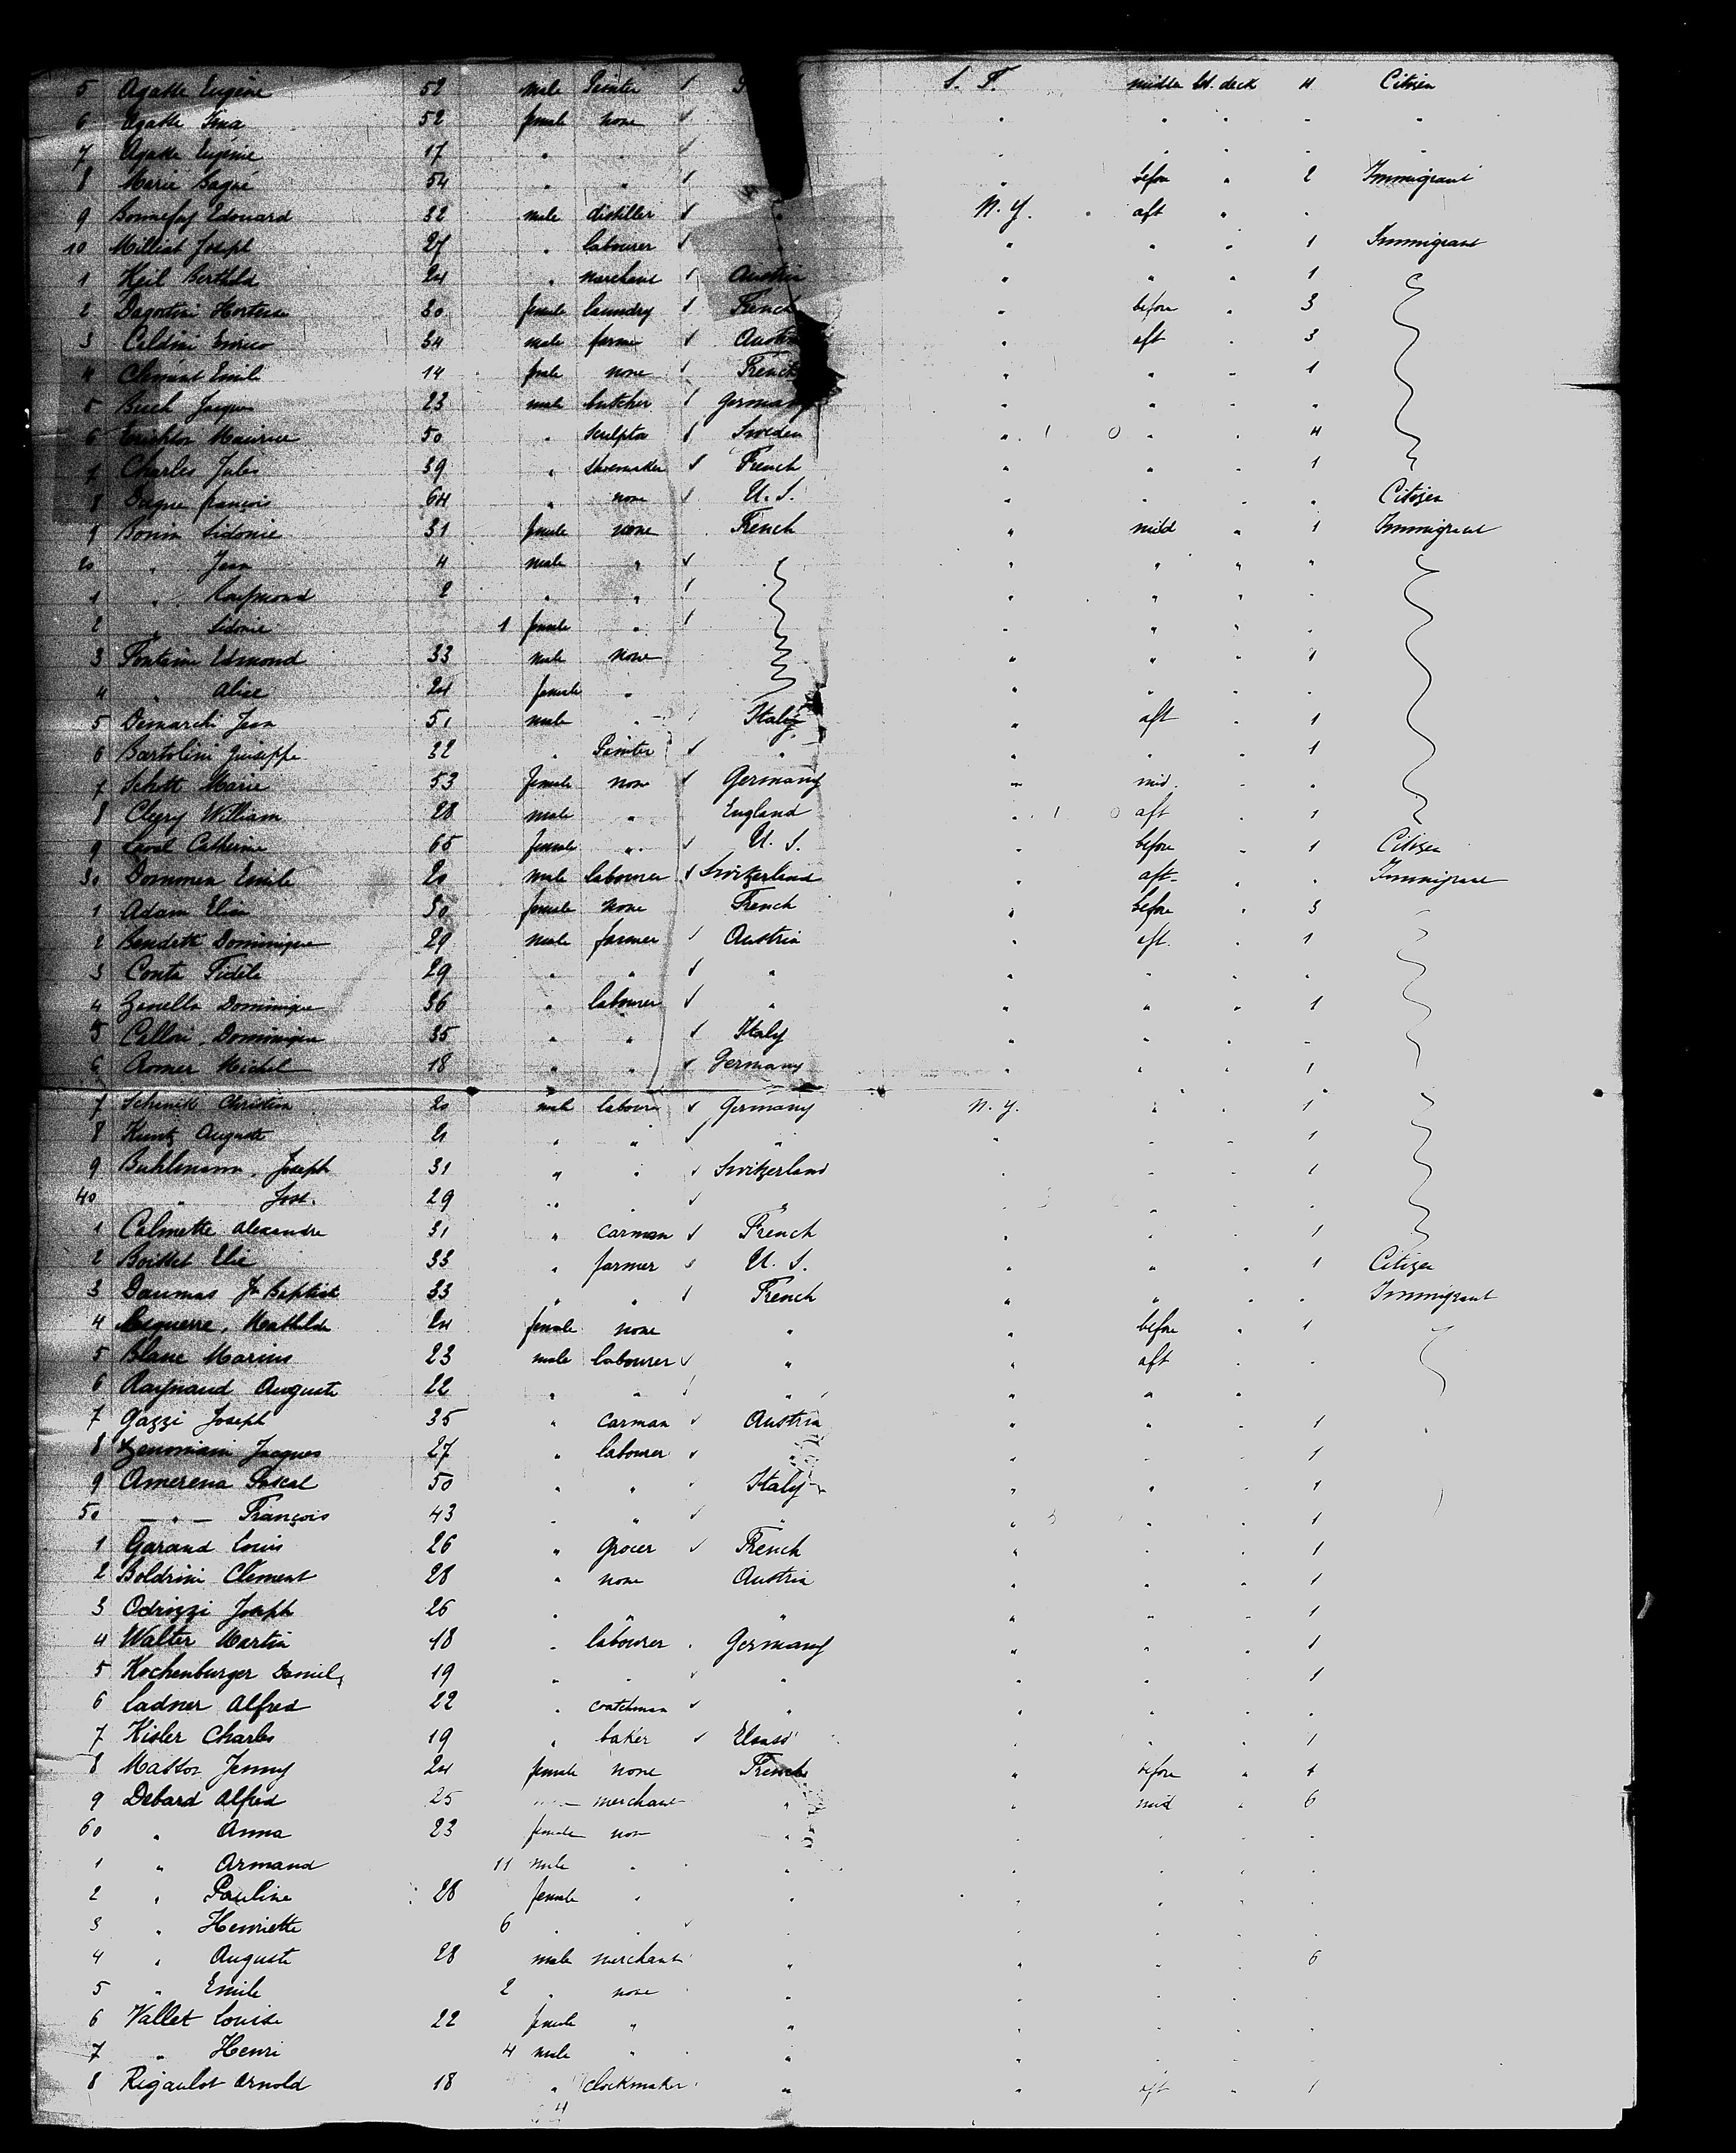 5 Agathe Eugène 52 male Painter S. F. middle bt. deck 4 Citizen
6 Agathe 52 female none " " " " "
7 Agathe Eugénie 17 " " " " " " "
8 Marie 54 " " " before " 2 Immigrant
9 Edouard 32 male distiller " N. Y. " aft " "
10 Milliat Joseph 27 " labourer " " " " 1 Immigrant
1 Keil Berthold 24 " Austria " " " 1
2 Dagostini Hortense 30 female laundry French " before " 3
3 Celdini Enrico 34 male farmer Austria " aft " 3
4 Clement Emile 14 none French " " " 1
5 Jacques 23 male butcher Germany " " " "
6 Maurice 50 " Sculptor Sweden " " " 4
7 Charles Jules 39 " Shoemaker French " " " 1
8 françois 64 " none U. S. " " " " Citizen
9 Bonin Sidonie 31 female none French " midd " 1 Immigrant
20 " Jean 4 male " " " " "
1 " Raymond 2 " " " " " "
2 " Sidonie 1 female " " " " "
3 Fontaine Edmond 33 male none " " " 1
4 " Alice 24 female " " " " "
5 Demarchi Jean 51 male " Italy " aft " 1
6 Bartolini Giuseppe 32 " Painter " " " " 1
7 Schott Marie 53 female none Germany " mid. " "
8 William 28 male " England " aft " 1
9 Catherine 65 female " U. S. " before " 1 Citizen
30 Dommen Emile 20 male labourer Switzerland " aft " " Immigrant
1 Adam Elise 30 female none French " before " 3
2 Dominique 29 male farmer Austria " aft. " 1
3 Conta Fidele 29 " " " " " " "
4 Zanella Dominique 36 " labourer " " " " 1
5 Callori, Dominique 35 " " Italy " " " "
6 Romer Michel 18 " " Germany " " " 1
7 Schenck Christian 20 male labourer Germany N. Y. " " 1
8 Kuntz Auguste 21 " " " " " " 1
9 Buhlmann, Joseph 31 " " Switzerland " " " 1
40 " Jost. 29 " " " " " "
1 Calmette Alexandre 31 " carman French " " " 1
2 Boisset Elie 33 " farmer U. S. " " " 1 Citizen
3 Daumas Jn Baptiste 33 " " French " " " " Immigrant
4 Mathilde 24 female none " " before " 1
5 Blanc Marius 23 male labourer " " aft " "
6 Raynaud Auguste 22 " " " " " "
7 Gazzi Joseph 35 " carman Austria " " " 1
8 Jacques 27 " labourer " " " " 1
9 Amerena Pascal 50 " " Italy " " " 1
50 — " — François 43 " " " " " " 1
1 Garand Louis 26 " grocer French " " " 1
2 Boldrini Clement 28 " none Austria " " " 1
3 Odrizzi Joseph 26 " " " " " " 1
4 Walter Martin 18 " labourer Germany " " 1
5 Kochenburger Daniel 19 " " " " " 1
6 Ladner Alfred 22 " coatchman " " " " "
7 Kisler Charles 19 " baker Elsass " " " 1
8 Jenny 24 female none French " before " 1
9 Debard Alfred 25 merchant " " mid " 6
60 " Anna 23 female non " " " " "
1 " Armand 11 male " " " " " "
2 " Pauline 28 female " " " " " "
3 " Henriette 6 " " " " " " "
4 " Auguste 28 male merchant " " " " 6
5 " Emile 2 " none " " " " "
6 Vallet Louise 22 female " " " " " "
7 " Henri 4 male " " " " " "
8 Rigaulot Arnold 18 " clockmaker " " aft " 1